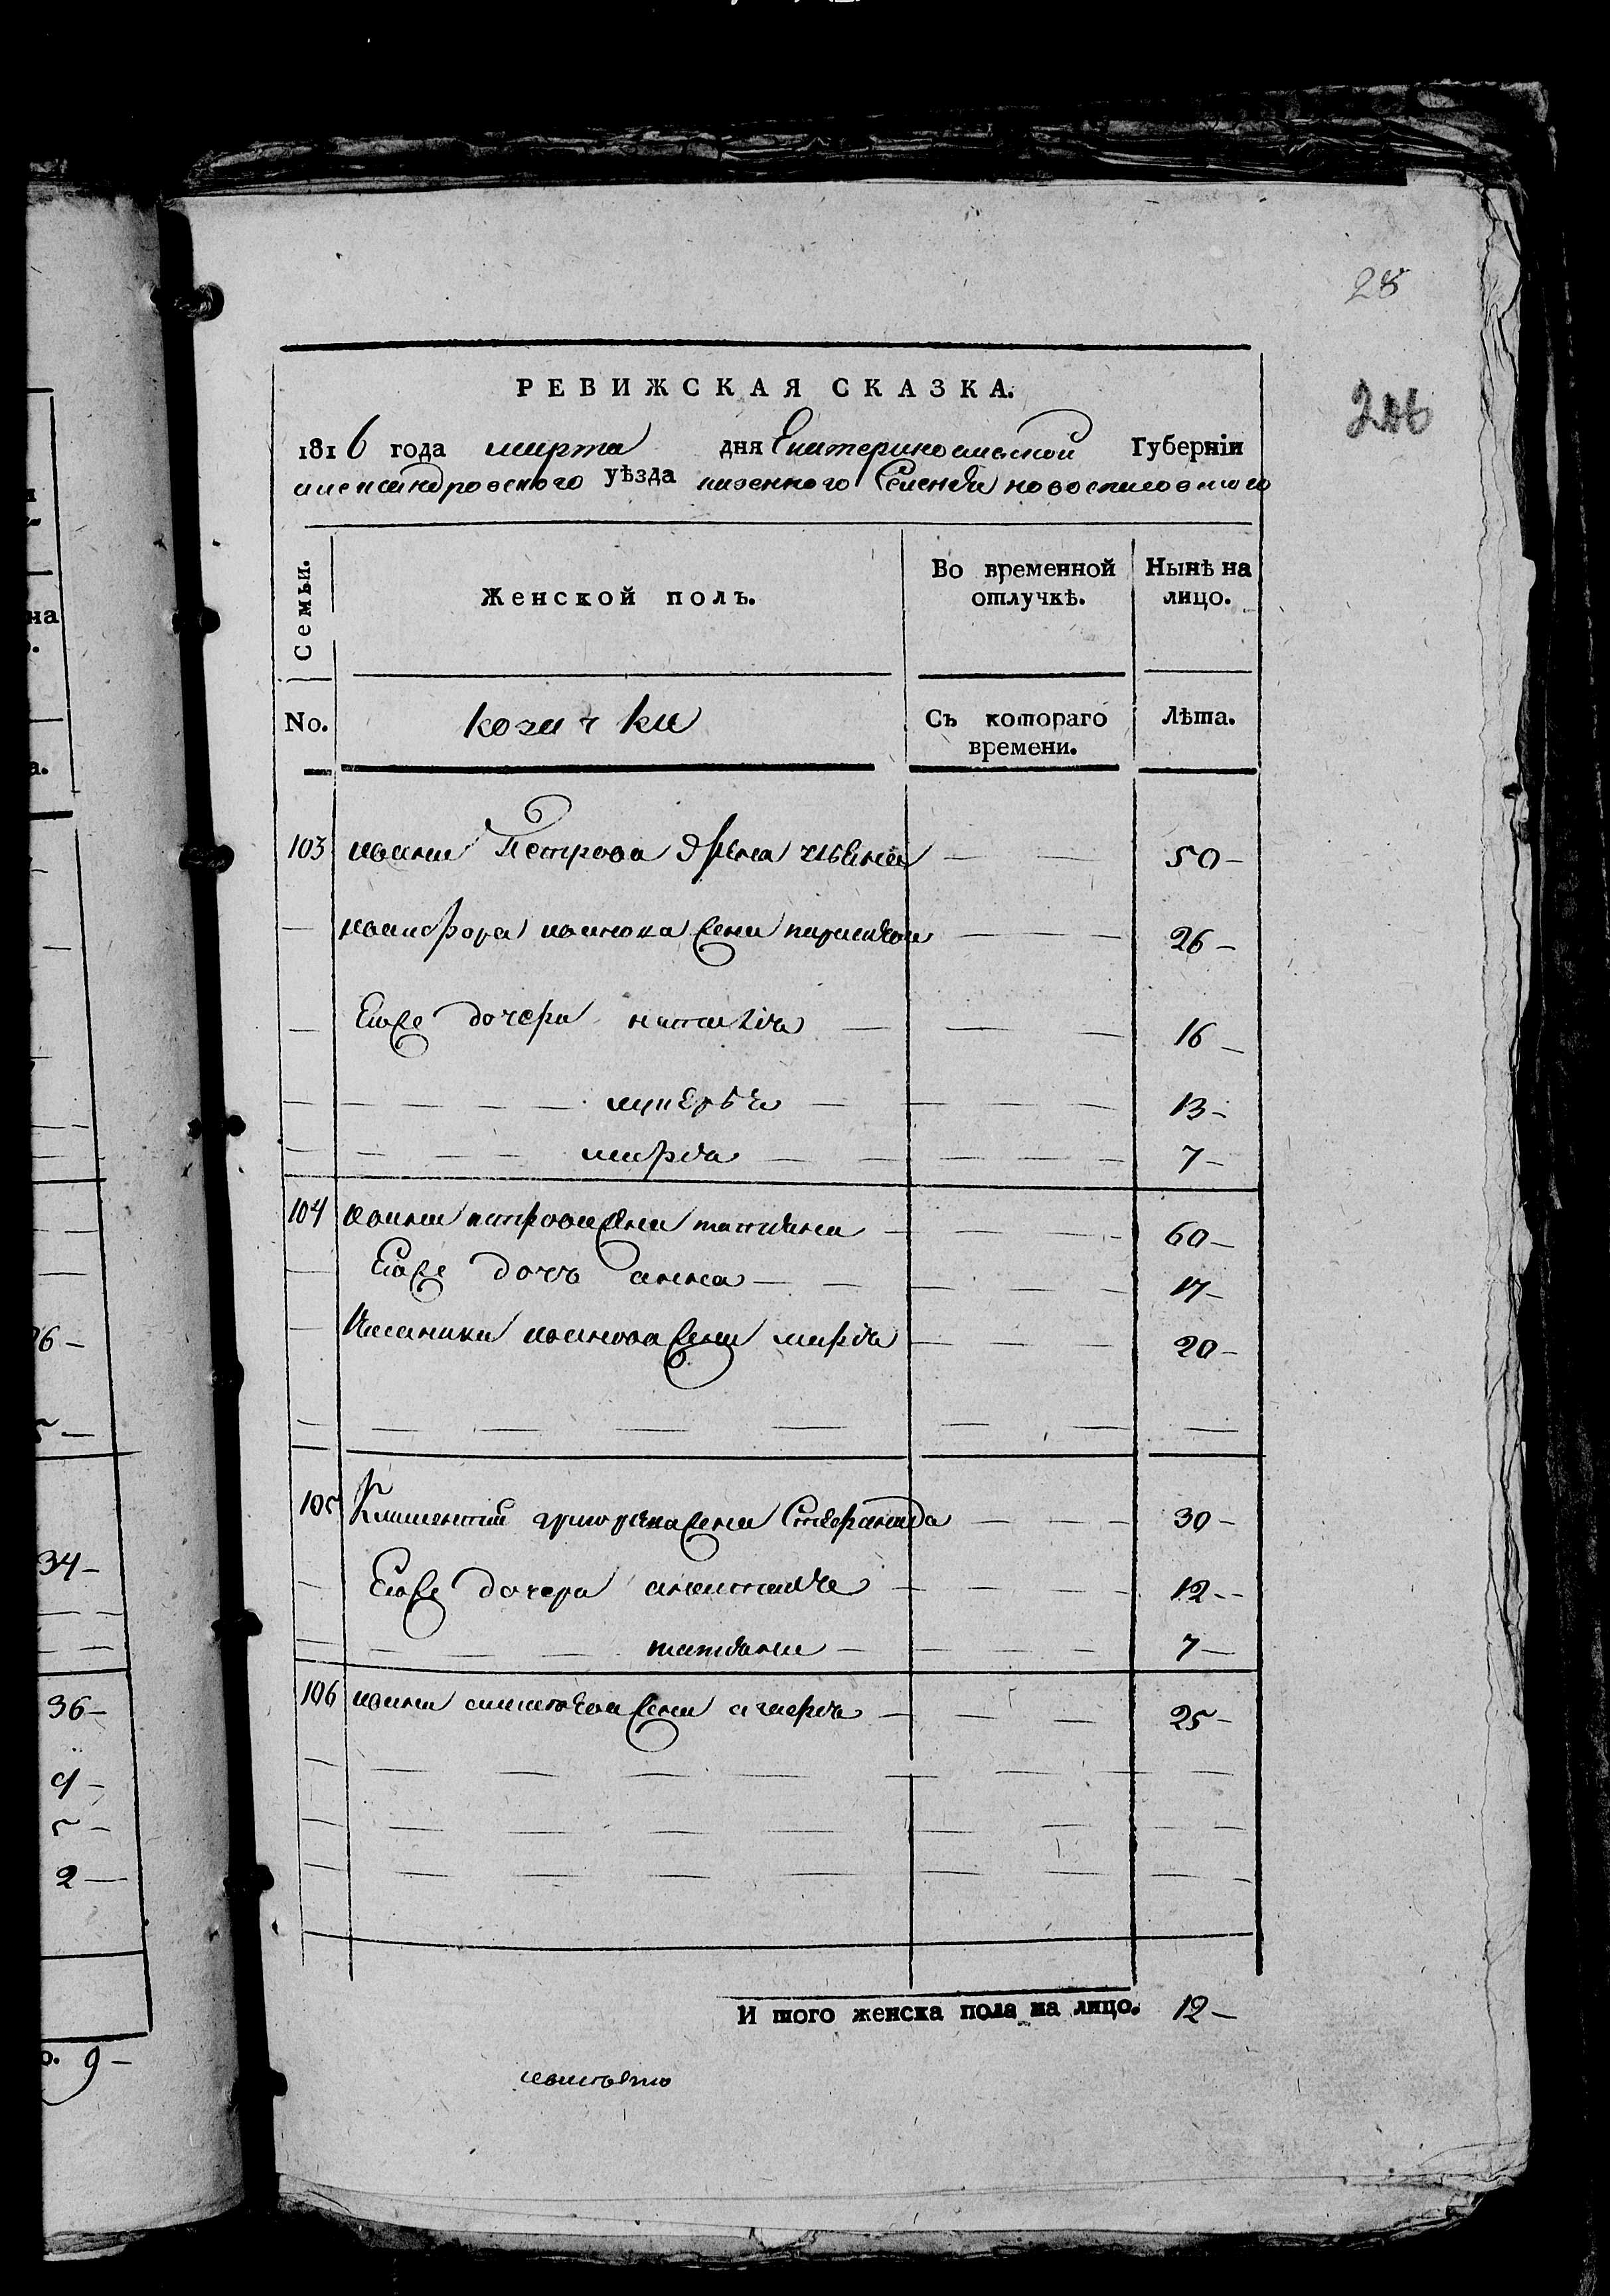 28
206
РЕВИЖСКАЯ СКАЗКА.
1816 года марта дня Екатеринославской Губерніи
александровского уѣзда казенного Селенія новоспасовского
Семьи.
Женской полъ.
Во временной отлучкѣ.
Нынѣ на лицо.
No.
Съ котораго времени.
Лѣта.
103 ивана Петрова жена 50
никифора иванова жена парасковия 26
Его же дочери наталія 16
лукерѣя 13
марія 7
104 ивана петрова жена татияна 60
Его же дочъ анна 17
иванова жена марія 20
105 Климентия григорiева жена Степанида 30
Его же дочери анастасия 12
татияна 7
106 ивана жена агафія 25
И того женска пола на лицо. 12
36
9
5
2
34
о. 9